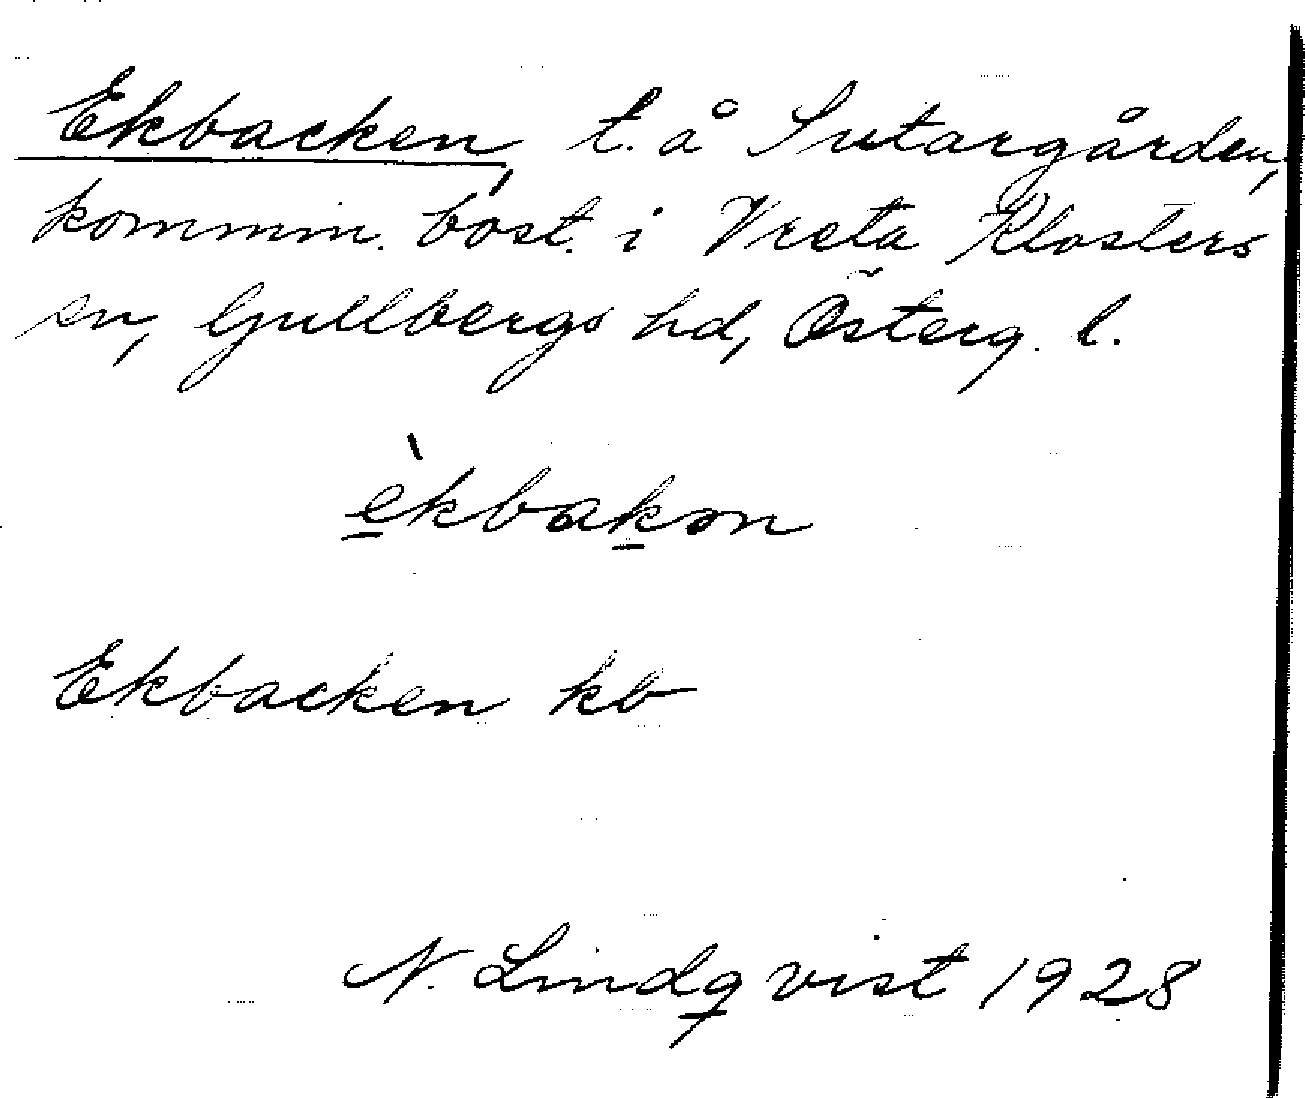 Ekbacken, t. å Sutargården,
kommin. bost. i Vreta Klosters
sn, Gullbergs hd, Österg. l.
èkbakən
Ekbacken kb
N. Lindqvist 1928